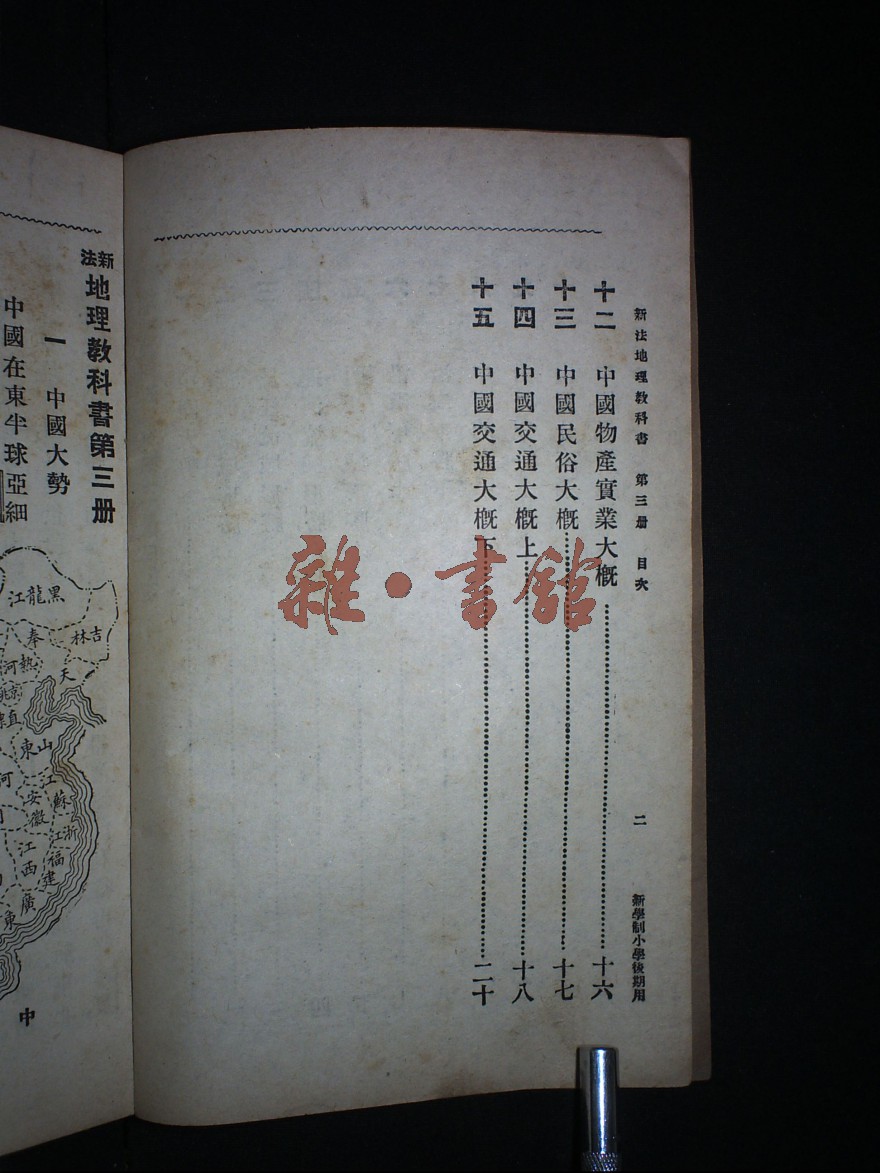 新法地理教科書 第三册 目次 二 新學制小學後期用
十二 中國物產實業大槪 十六
十三 中國民俗大槪 十七
十四 中國交通大槪上 十八
十五 中國交通大槪下 二十
雜・書館
新法地理教科書第三册
一 中國大勢
中國在東半球亞細
黑龍江
吉林
奉天
熱河
京兆
直
山東
河
江蘇
安徽
浙江
江西
福建
廣東
中